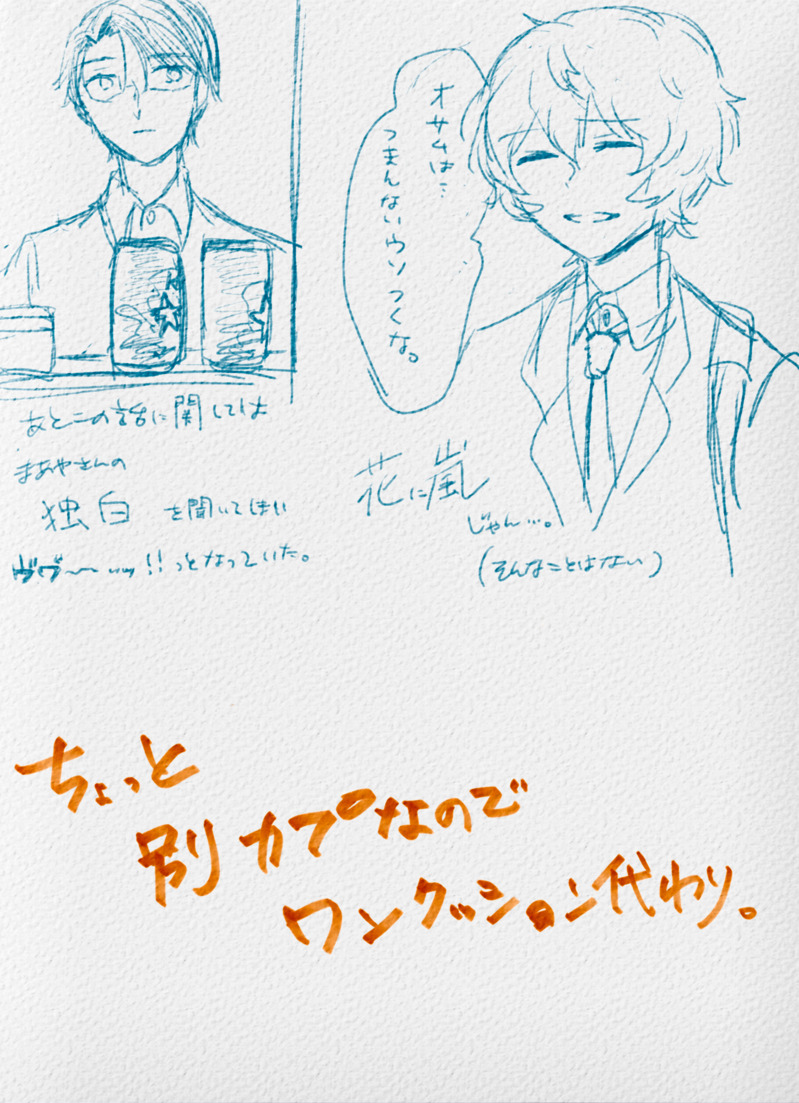 オサムは…
つまんないウソつくな。
あとこの話に関しては
まあやさんの
独白 を聞いてほしい
ヴヴ〜〜ッッ!!っとなっていた。
花に嵐
じゃん…。
(そんなことはない)
ちょっと
別カプなので
ワンクッション代わり。